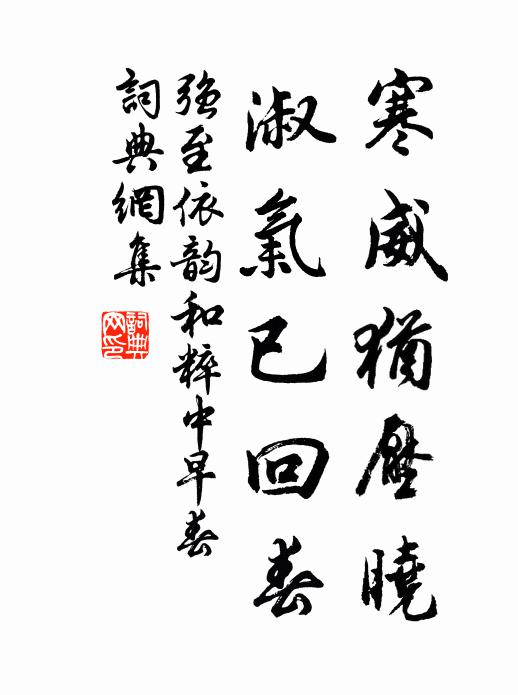 寒威猶壓曉
淑氣已回春
強至依韵和粹中早春
詞典網集
詞典网印